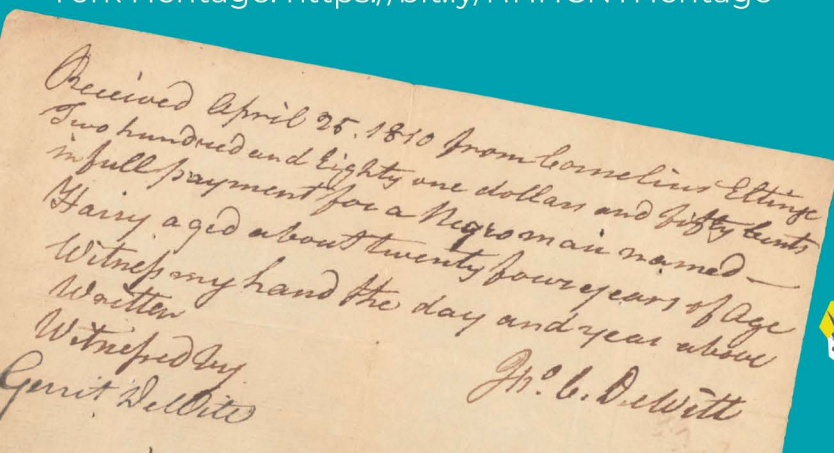 York Heritage: https://bit.ly/HHHCNYHeritage
Received April 25. 1810 from Cornelius Eltinge
Two hundred and Eighty one dollars and fifty Cents
in full payment for a Negro man named —
Harry aged about twenty four years of Age
Witness my hand the day and year above
Written
Witnessed by
Gerrit DeWitt
Jno. C. DeWitt